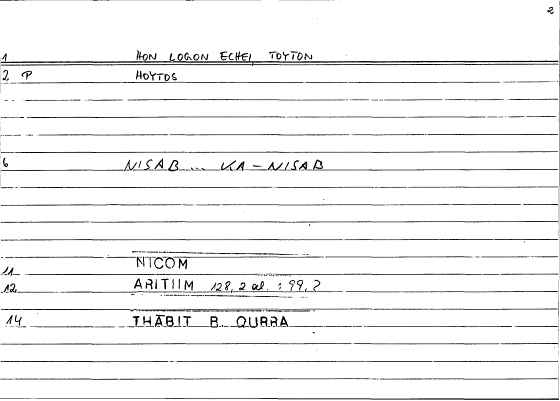 2
1 HON LOGON ECHEI TOYTON
2 P HOYTOS
6 NISAB ... KA – NISAB
11 NICOM
12 ARITIIM 128, 2 al. : 99, ?
14 THĀBIT B. QURRA